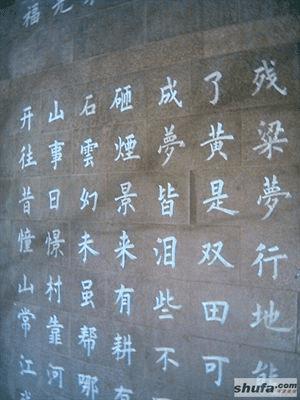 福元
开山石砸成了残
往事雲煙夢黄粱
昔日幻景皆是夢
憧憬未来泪双行
山村虽有些田地
常靠帮耕不可能
江河哪有
shufa.com